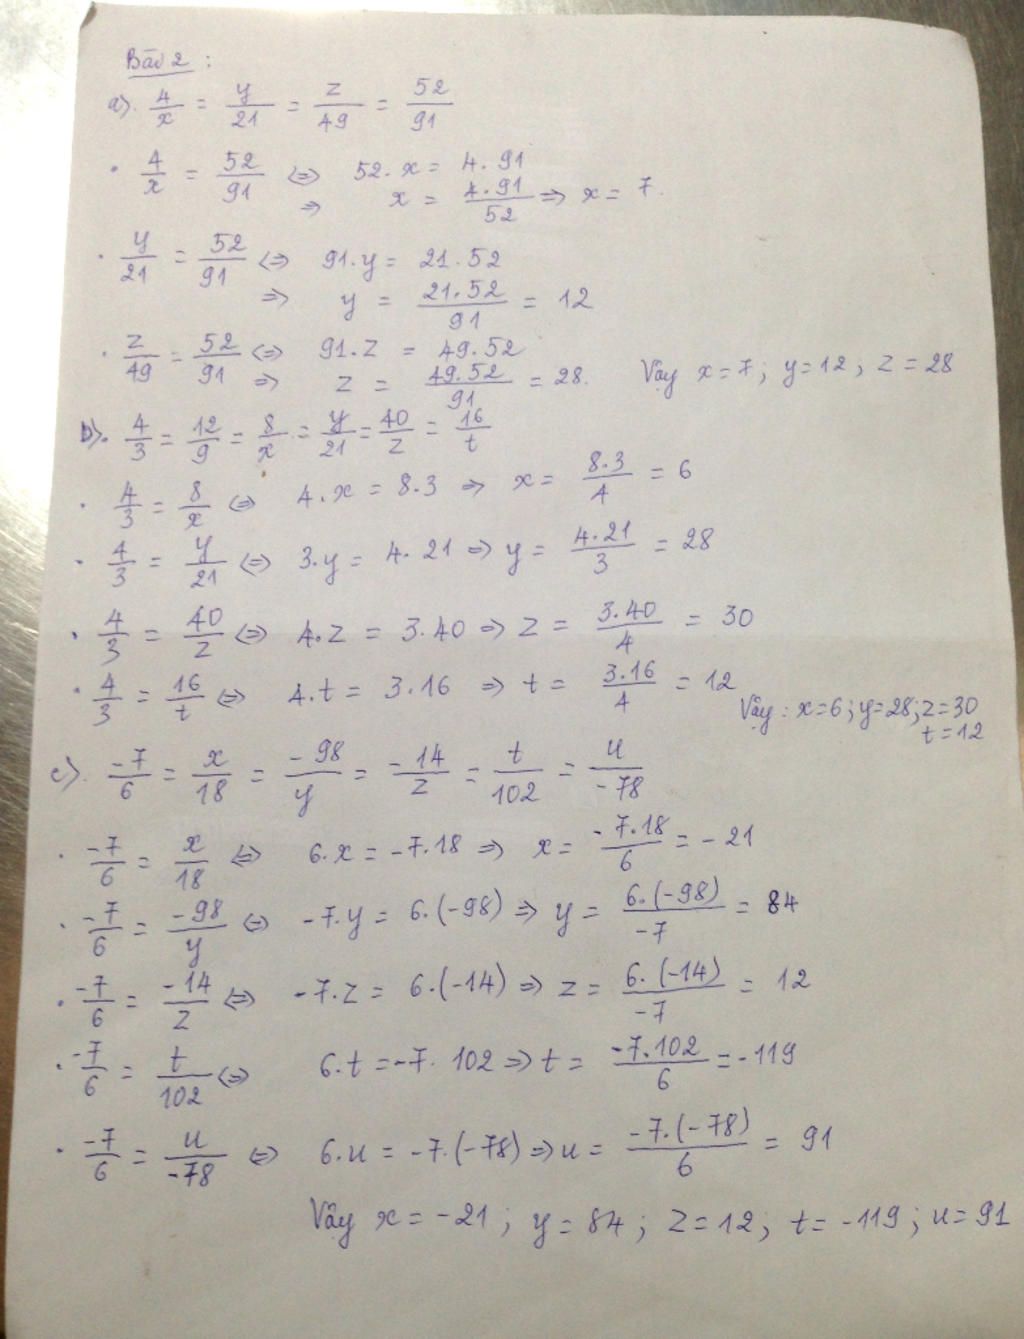 Bài 2 :
a). 4/x = y/21 = z/49 = 52/91
· 4/x = 52/91 <=> 52.x = 4.91
=> x = 4.91/52 => x = 7.
· y/21 = 52/91 <=> 91.y = 21.52
=> y = 21.52/91 = 12
· z/49 = 52/91 <=> 91.z = 49.52
=> z = 49.52/91 = 28. Vậy x=7; y=12; z=28
b). 4/3 = 12/9 = 8/x = y/21 = 40/z = 16/t
· 4/3 = 8/x <=> 4.x = 8.3 => x = 8.3/4 = 6
· 4/3 = y/21 <=> 3.y = 4.21 => y = 4.21/3 = 28
· 4/3 = 40/z <=> 4.z = 3.40 => z = 3.40/4 = 30
· 4/3 = 16/t <=> 4.t = 3.16 => t = 3.16/4 = 12
Vậy : x=6; y=28; z=30
t=12
c). -7/6 = x/18 = -98/y = -14/z = t/102 = u/-78
· -7/6 = x/18 <=> 6.x = -7.18 => x = -7.18/6 = -21
· -7/6 = -98/y <=> -7.y = 6.(-98) => y = 6.(-98)/-7 = 84
· -7/6 = -14/z <=> -7.z = 6.(-14) => z = 6.(-14)/-7 = 12
· -7/6 = t/102 <=> 6.t = -7.102 => t = -7.102/6 = -119
· -7/6 = u/-78 <=> 6.u = -7.(-78) => u = -7.(-78)/6 = 91
Vậy x = -21 ; y = 84 ; z = 12 ; t = -119 ; u = 91